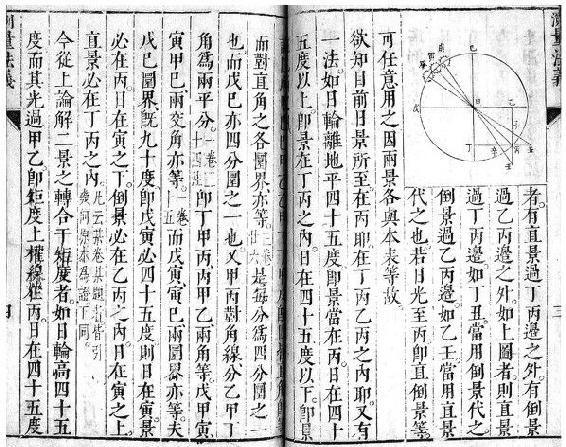 測量法義
三
巳
戊
甲
乙
丁
者有直景過丁丙邊之外有倒景
過乙丙邊之外如上圖者則直景
過丁丙邊如丁丑當用倒景代之
倒景過乙丙邊如乙壬當用直景
代之也若日光至丙卽直倒景等
可任意用之因兩景各與本表等故
欲知日前日景所至在丙耶在丁丙乙丙之內耶又有
一法如日輪離地平四十五度卽景當在丙日在四十
五度以上卽景在丁丙之內日在四十五度以下卽景
而對直角之各圜界亦等三卷廿六是每分爲四分圜之一
也而戊巳亦四分圜之一也又甲丙對角線分乙甲丁
角爲兩平分一卷卽丁甲丙丙甲乙兩角等戊甲寅
寅甲巳兩交角亦等一卷十五而戊寅寅巳兩圜界亦等夫
戊巳圜界旣九十度卽戊寅必四十五度則日在寅景
必在丙日在寅之下倒景必在乙丙之內日在寅之上
直景必在丁丙之內凡云某卷某題者皆引幾何原本爲證下同
今從上論解二景之轉合于矩度者如日輪高四十五
度而其光過甲乙卽矩度上權線在丙日在四十五度
測量法義
四